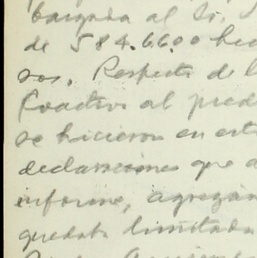 cargada al Sr.
de 584.6600 hec
sos. Respecto de l
Coactivo al pred
se hicieron en est
declaraciones que a
informe, agregan
quedaba limitada